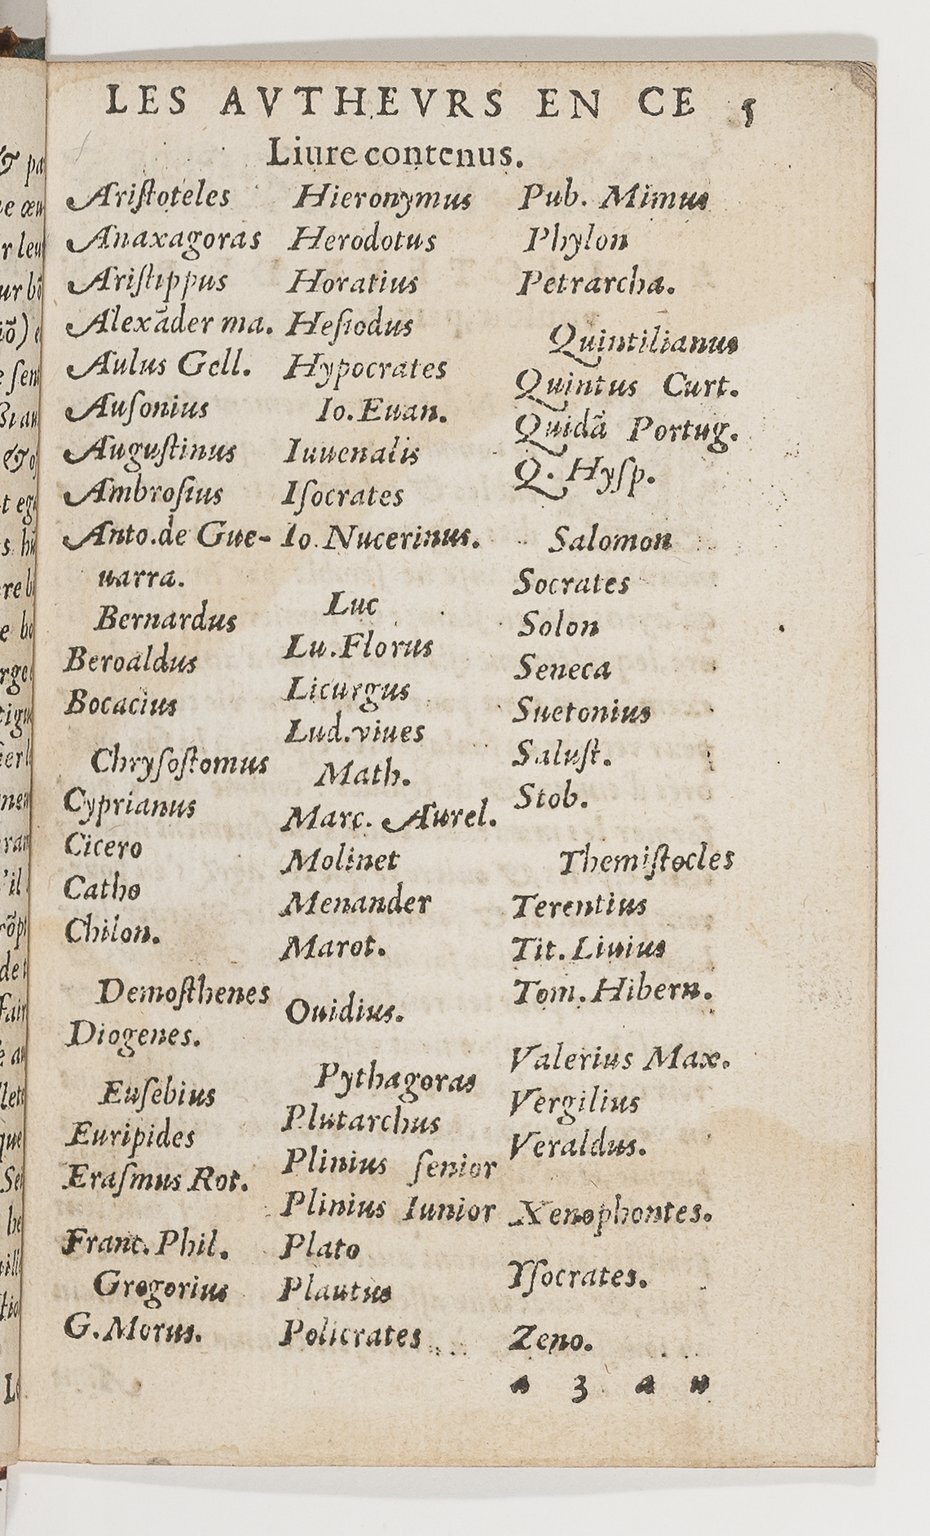 LES AVTHEVRS EN CE 5
Liure contenus.
Ariſtoteles
Anaxagoras
Ariſtippus
Alexãder ma.
Aulus Gell.
Auſonius
Auguſtinus
Ambroſius
Anto.de Gue-
uarra.
Bernardus
Beroaldus
Bocacius
Chryſoſtomus
Cyprianus
Cicero
Catho
Chilon.
Demoſthenes
Diogenes.
Euſebius
Euripides
Eraſmus Rot.
Franc. Phil.
Gregorius
G. Morus.
Hieronymus
Herodotus
Horatius
Heſiodus
Hypocrates
Io. Euan.
Iuuenalis
Iſocrates
Io. Nucerinus.
Luc
Lu. Florus
Licurgus
Lud. viues
Math.
Marc. Aurel.
Molinet
Menander
Marot.
Ouidius.
Pythagoras
Plutarchus
Plinius ſenior
Plinius Iunior
Plato
Plautus
Policrates
Pub. Mimus
Phylon
Petrarcha.
Quintilianus
Quintus Curt.
Quidã Portug.
Q. Hyſp.
Salomon
Socrates
Solon
Seneca
Suetonius
Saluſt.
Stob.
Themiſtocles
Terentius
Tit. Liuius
Tom. Hibern.
Valerius Max.
Vergilius
Veraldus.
Xenophontes.
Yſocrates.
Zeno.
a 3